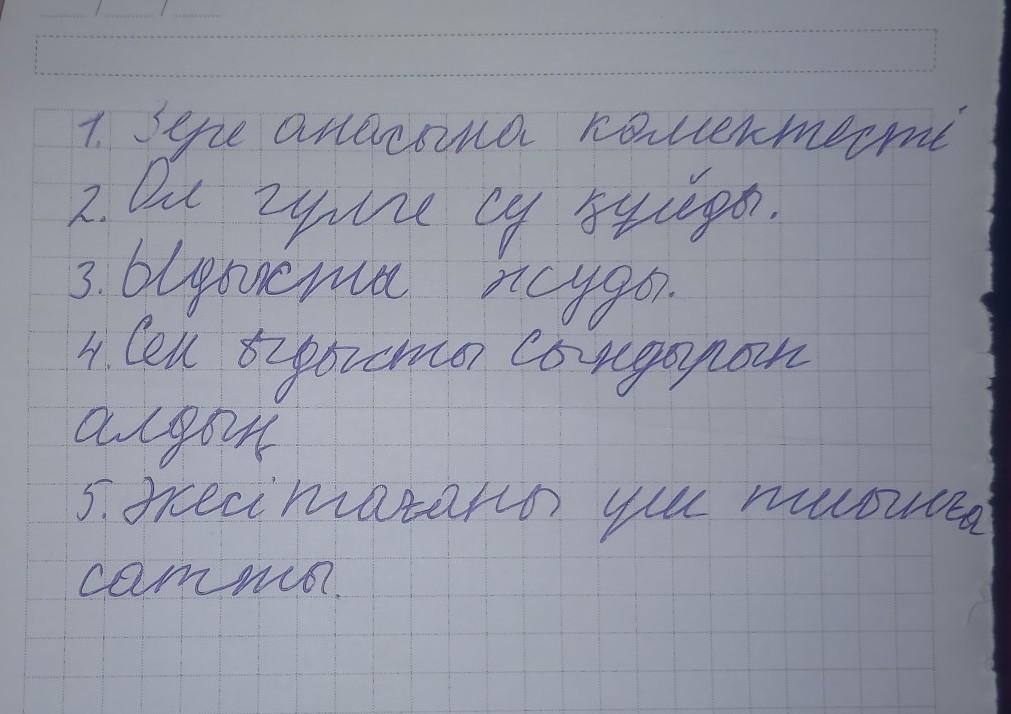 1. Зере анасына көмектесті
2. Ол гүлге су құйды.
3. Ыдысты жуды.
4. Сен ыдысты сындырып
алдың
5. Әкесі тағаны үш тиынға
сатты.